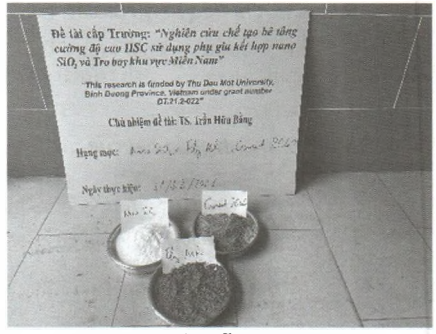 Đề tài cấp Trường: "Nghiên cứu chế tạo bê tông
cường độ cao HSC sử dụng phụ gia kết hợp nano
SiO₂ và Tro bay khu vực Miền Nam"
"This research is funded by Thu Dau Mot University,
Binh Duong Province, Vietnam under grant number
DT.21.2-022"
Chủ nhiệm đề tài: TS. Trần Hữu Bằng
Hạng mục: Nano SiO₂ Fly Ash
Ngày thực hiện:
Nano SiO₂
Fly Ash